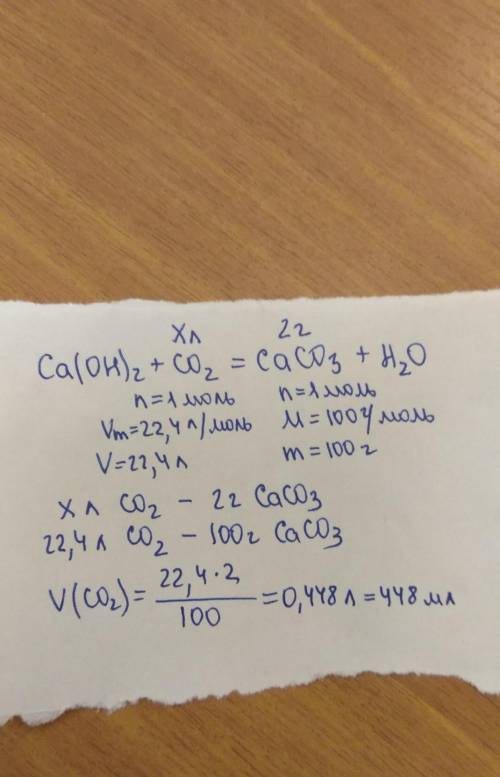 x л 2г
Ca(OH)₂ + CO₂ = CaCO₃ + H₂O
n = 1 моль n = 1 моль
Vm = 22,4 л/моль M = 100 г/моль
V = 22,4 л m = 100 г
x л CO₂ – 2г CaCO₃
22,4 л CO₂ – 100г CaCO₃
V(CO₂) = 22,4·2 / 100 = 0,448 л = 448 мл